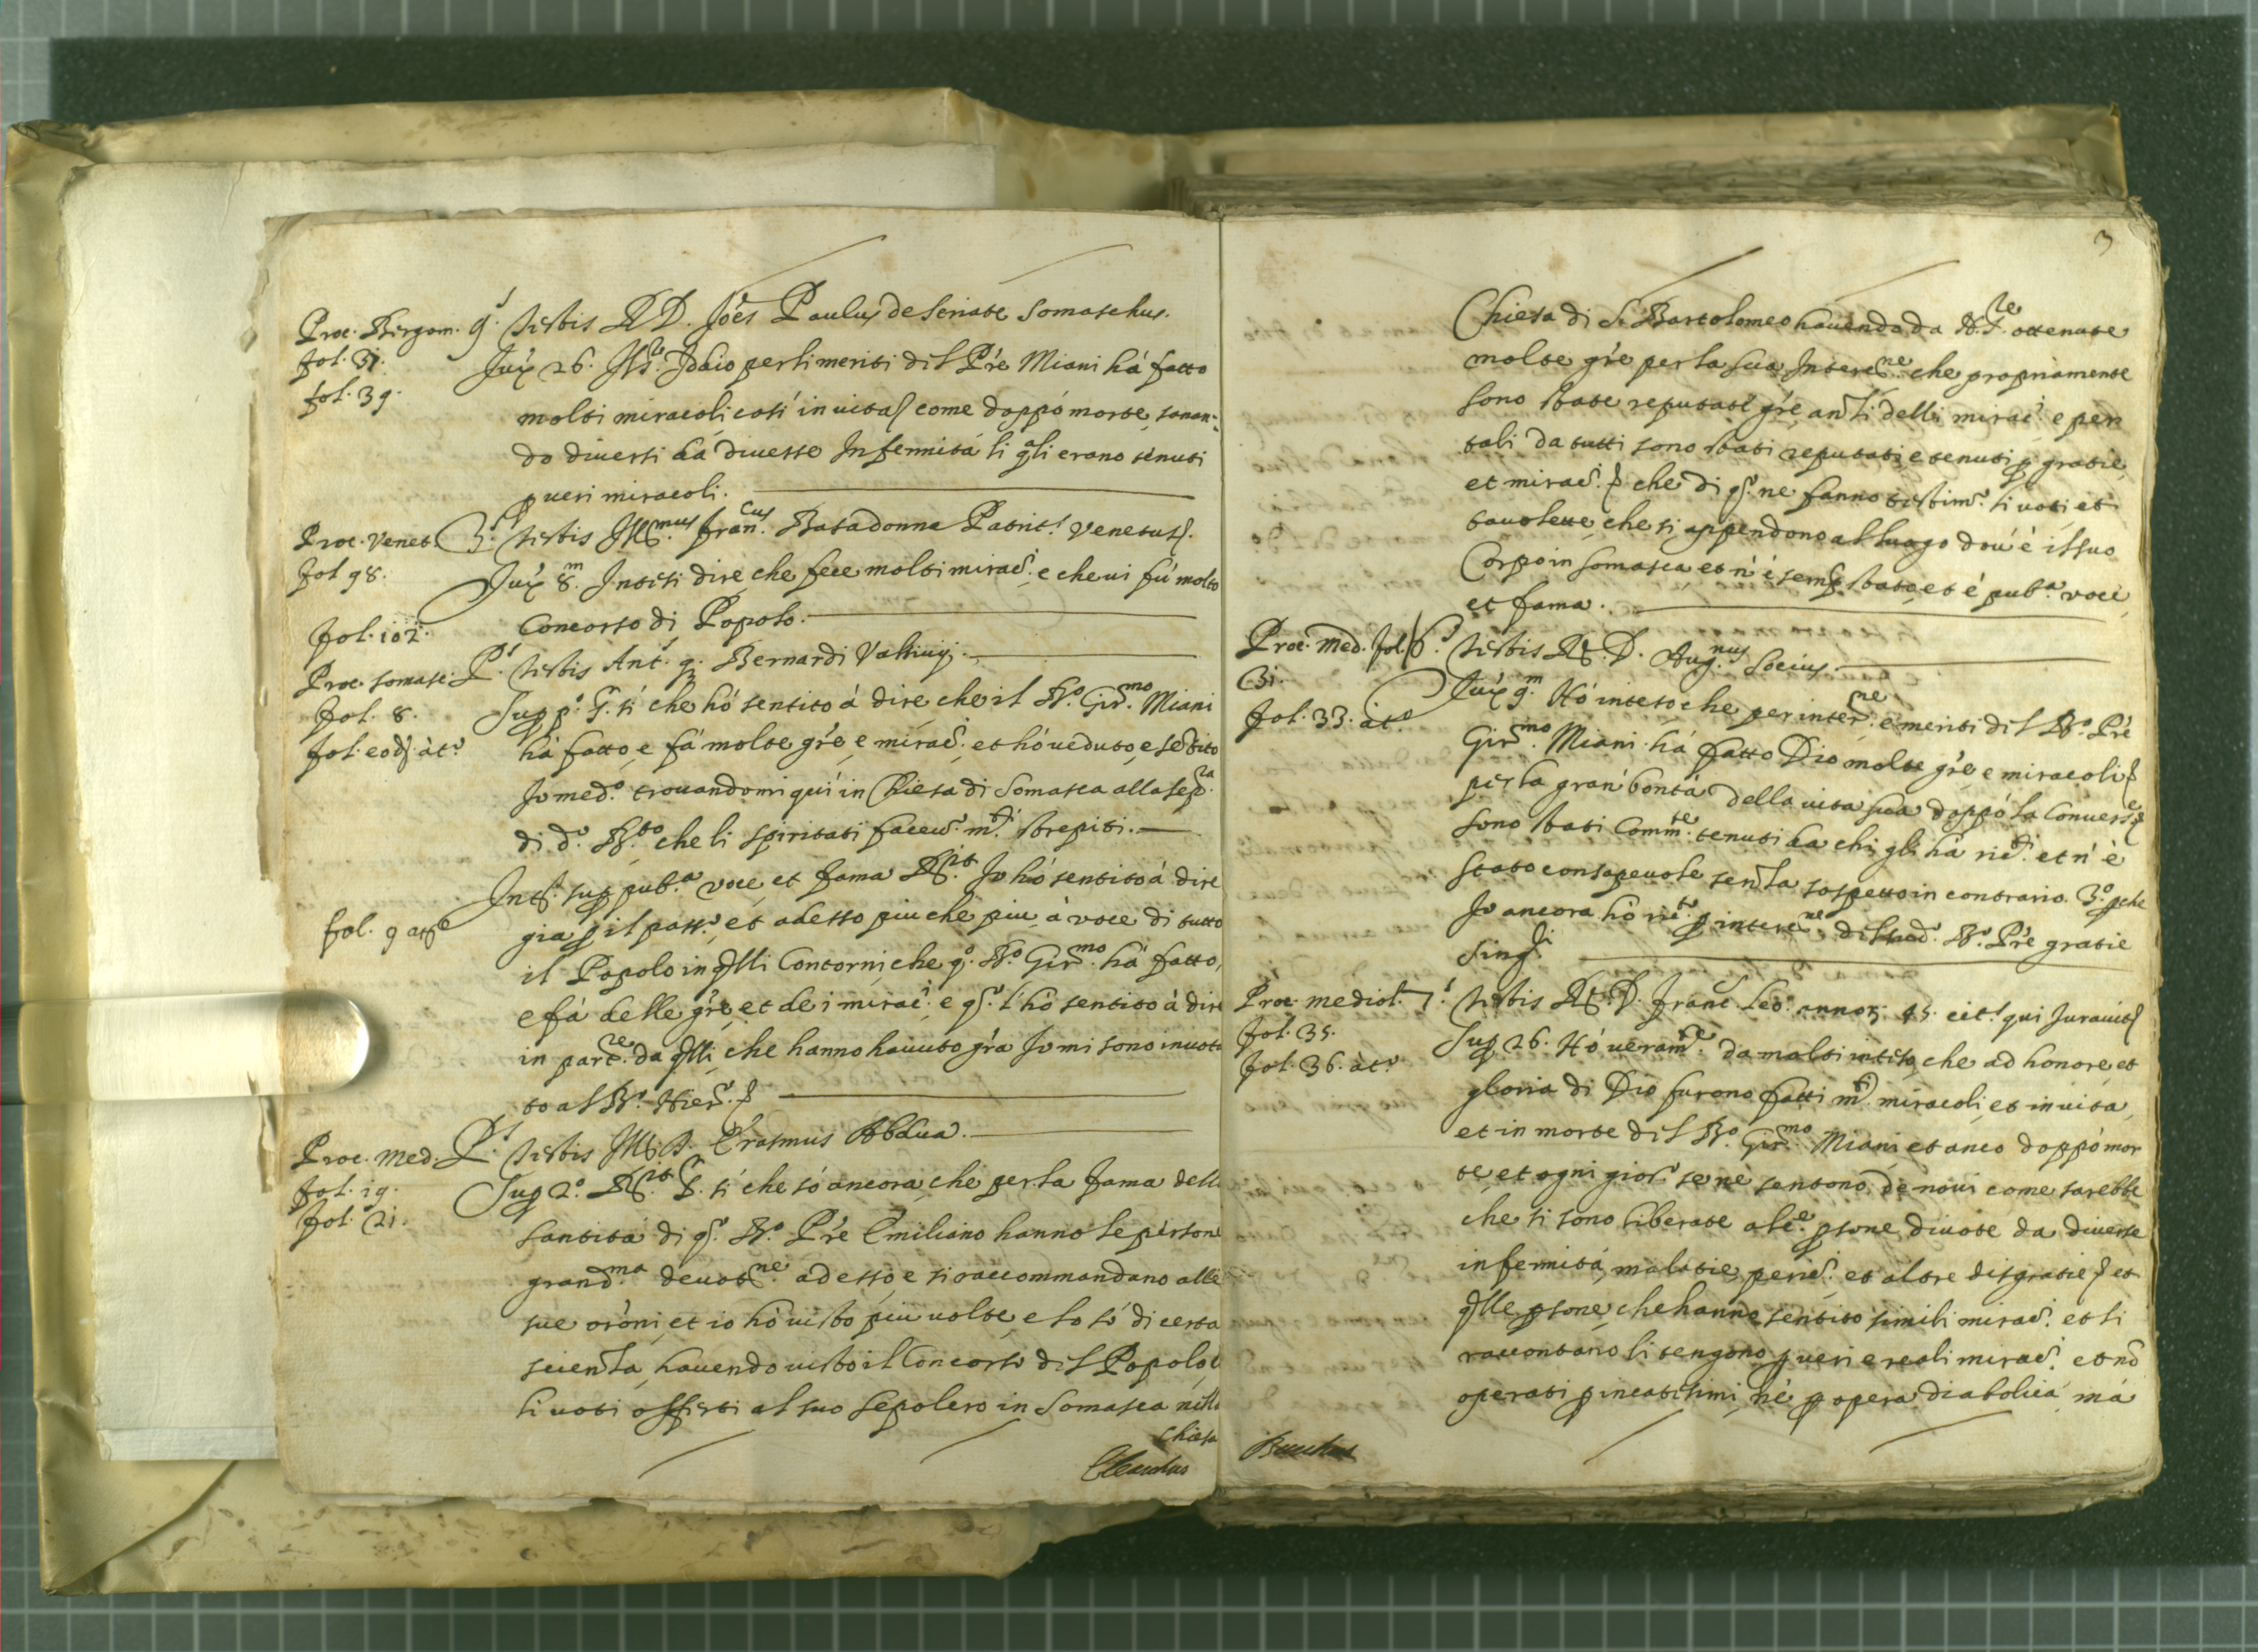 Proc. Bergom. 9.s testis R D. Joes Paulus de Seriate Somaschus.
fol. 31.
fol. 39.
Jux 26. Idio per li meriti del Pre Miani há fatto
molti miracoli cosí in vita come doppó morte, sanan-
do diuersi da diuerse Infermitá li qali erano tenuti
p ueri miracoli.
Proc. Venet. 3.s testis Illmus Francus Batadonna Patrit.s Venetus.
fol 98.
Jux 8.m Intesi dire che fece molti mirac. e che ui fú molto
fol. 102.
Concorso di Popolo.
Proc. Somasc. P.s testis Ant.s q. Bernardi Valsinij.
fol. 8.
fol. eod. àt.o
Sup p.o R. sí che hó sentito á dire, che il B.o Girmo Miani
há fatto, e fá molte gre, e mirac. et hó ueduto, e setito
Jo med.o trouandomi quí in Chiesa di Somasca alla sep.ra
di d.o B.to che li spiritati faceu.o m.ti strepiti.
fol. 9 at.o
Int.s sup pub.a voce, et fama R.it Jo hó sentito á dire
gia p il pass.o, et adesso piu che piu á voce di tutto
il Popolo in qlli Contorni, che q.o B.o Gir.mo há fatto,
e fá delle gre, et dei mirac. e q.o l'hó sentito á dire
in part.re da qlli, che hanno hauuto gra Jo mi sono inuota
to al B.o Hier.o
Proc. Med. P.s testis Ill. D. Erasmus Abdua.
fol. 19.
fol. 21.
Sup 2.o R.it R. sí che só ancora, che per la fama della
santitá di q.o B.o Pre Emiliano hanno le persone
grand.ma deuot.ne adesso, e si raccommandano alle
sue oroni, et io hó uisto piu uolte, e lo só di certa
scienza, hauendo uisto il Concorso del Popolo,
li uoti offerti al suo Sepolcro in Somasca nella
Chiesa
3
Chiesa di S. Bartolomeo hauendo da ottenute
molte gre per la sua Interc.ne che propriamente
sono state reputate gre, anzi delli mirac. e per
tali da tutti sono stati reputati, e tenuti p gratie,
et mirac. che di q.o ne fanno testim.o li uoti, et
tauolette, che si appendono al luogo dou' è il suo
Corpo in Somasca, et n' é semp stato, et é pub.a voce,
et fama.
Proc. Med. fol. 6.s testis R. D. Aug.nus Socius.
31.
fol. 33. àt.o
Jux 9.m Hó inteso che per inter.ne e meriti del B.o Pre
Gir.mo Miani há fatto Dio molte gre e miracoli
per la gran bontá della uita sua doppó la Conuers.e
sono stati Comm.te tenuti da chi gli há ric.ti et n' é
stato consapeuole senza sospetto in contrario. 3.o pche
Jo ancora hó ric.to p interc.ne del sud.o B.o Pre gratie
sing.li
Proc. Mediol. 7.s testis R. D. Franc. Leo. annor 45. cit.s qui Jurauit
fol. 35.
fol. 36. àt.o
Sup 26. Hó ueram.te da molti inteso, che ad honore, et
gloria di Dio furono fatti m.ti miracoli, et in uita,
et in morte del B.o Gir.mo Miani, et anco doppó mor
te, et ogni gior.o se né sentono de nóui come sarebbe
che si sono liberate alc.e psone diuote da diuerse
infermitá, malatie, peric. et altre disgratie et
qlle psone, che hanno sentito simili mirac. et li
raccontano li tengono p ueri e reali mirac. et nó
operati p incantesimi, né p opera diabolica, má